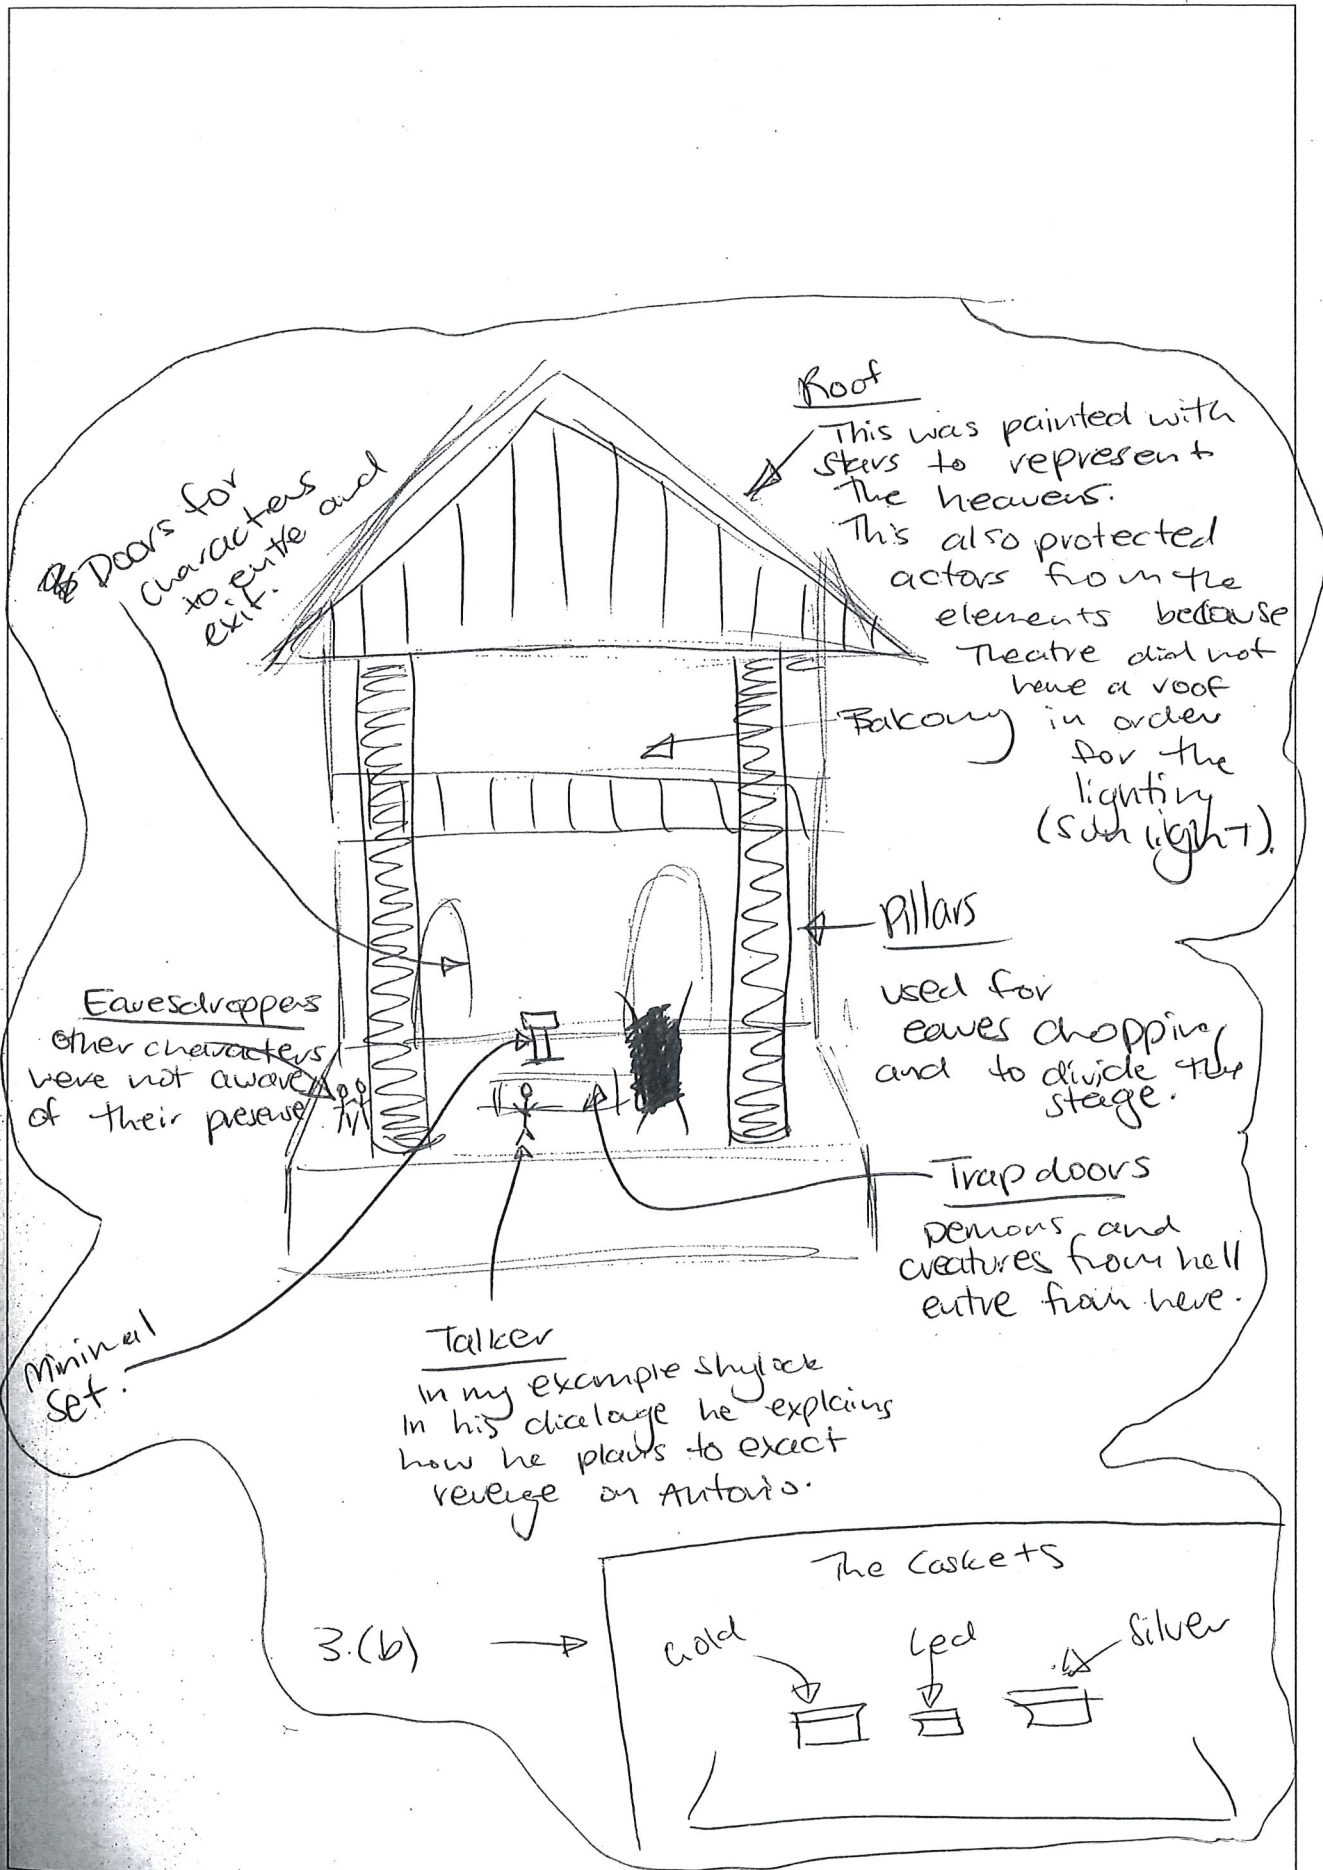 Roof
This was painted with
stars to represent
the heavens.
This also protected
actors from the
elements because
Theatre did not
have a roof
in order
for the
lighting
(sun light).
Doors for
characters
to entre and
exit.
Balcony
Pillars
used for
eaves dropping
and to divide the
stage.
Eavesdroppers
other characters
were not aware
of their presense
Trap doors
Demons and
creatures from hell
entre from here.
Minimal
set.
Talker
In my example Shylock
In his dialouge he explains
how he plans to exact
revenge on Antonio.
The Caskets
3.(b)
Gold
Led
Silver